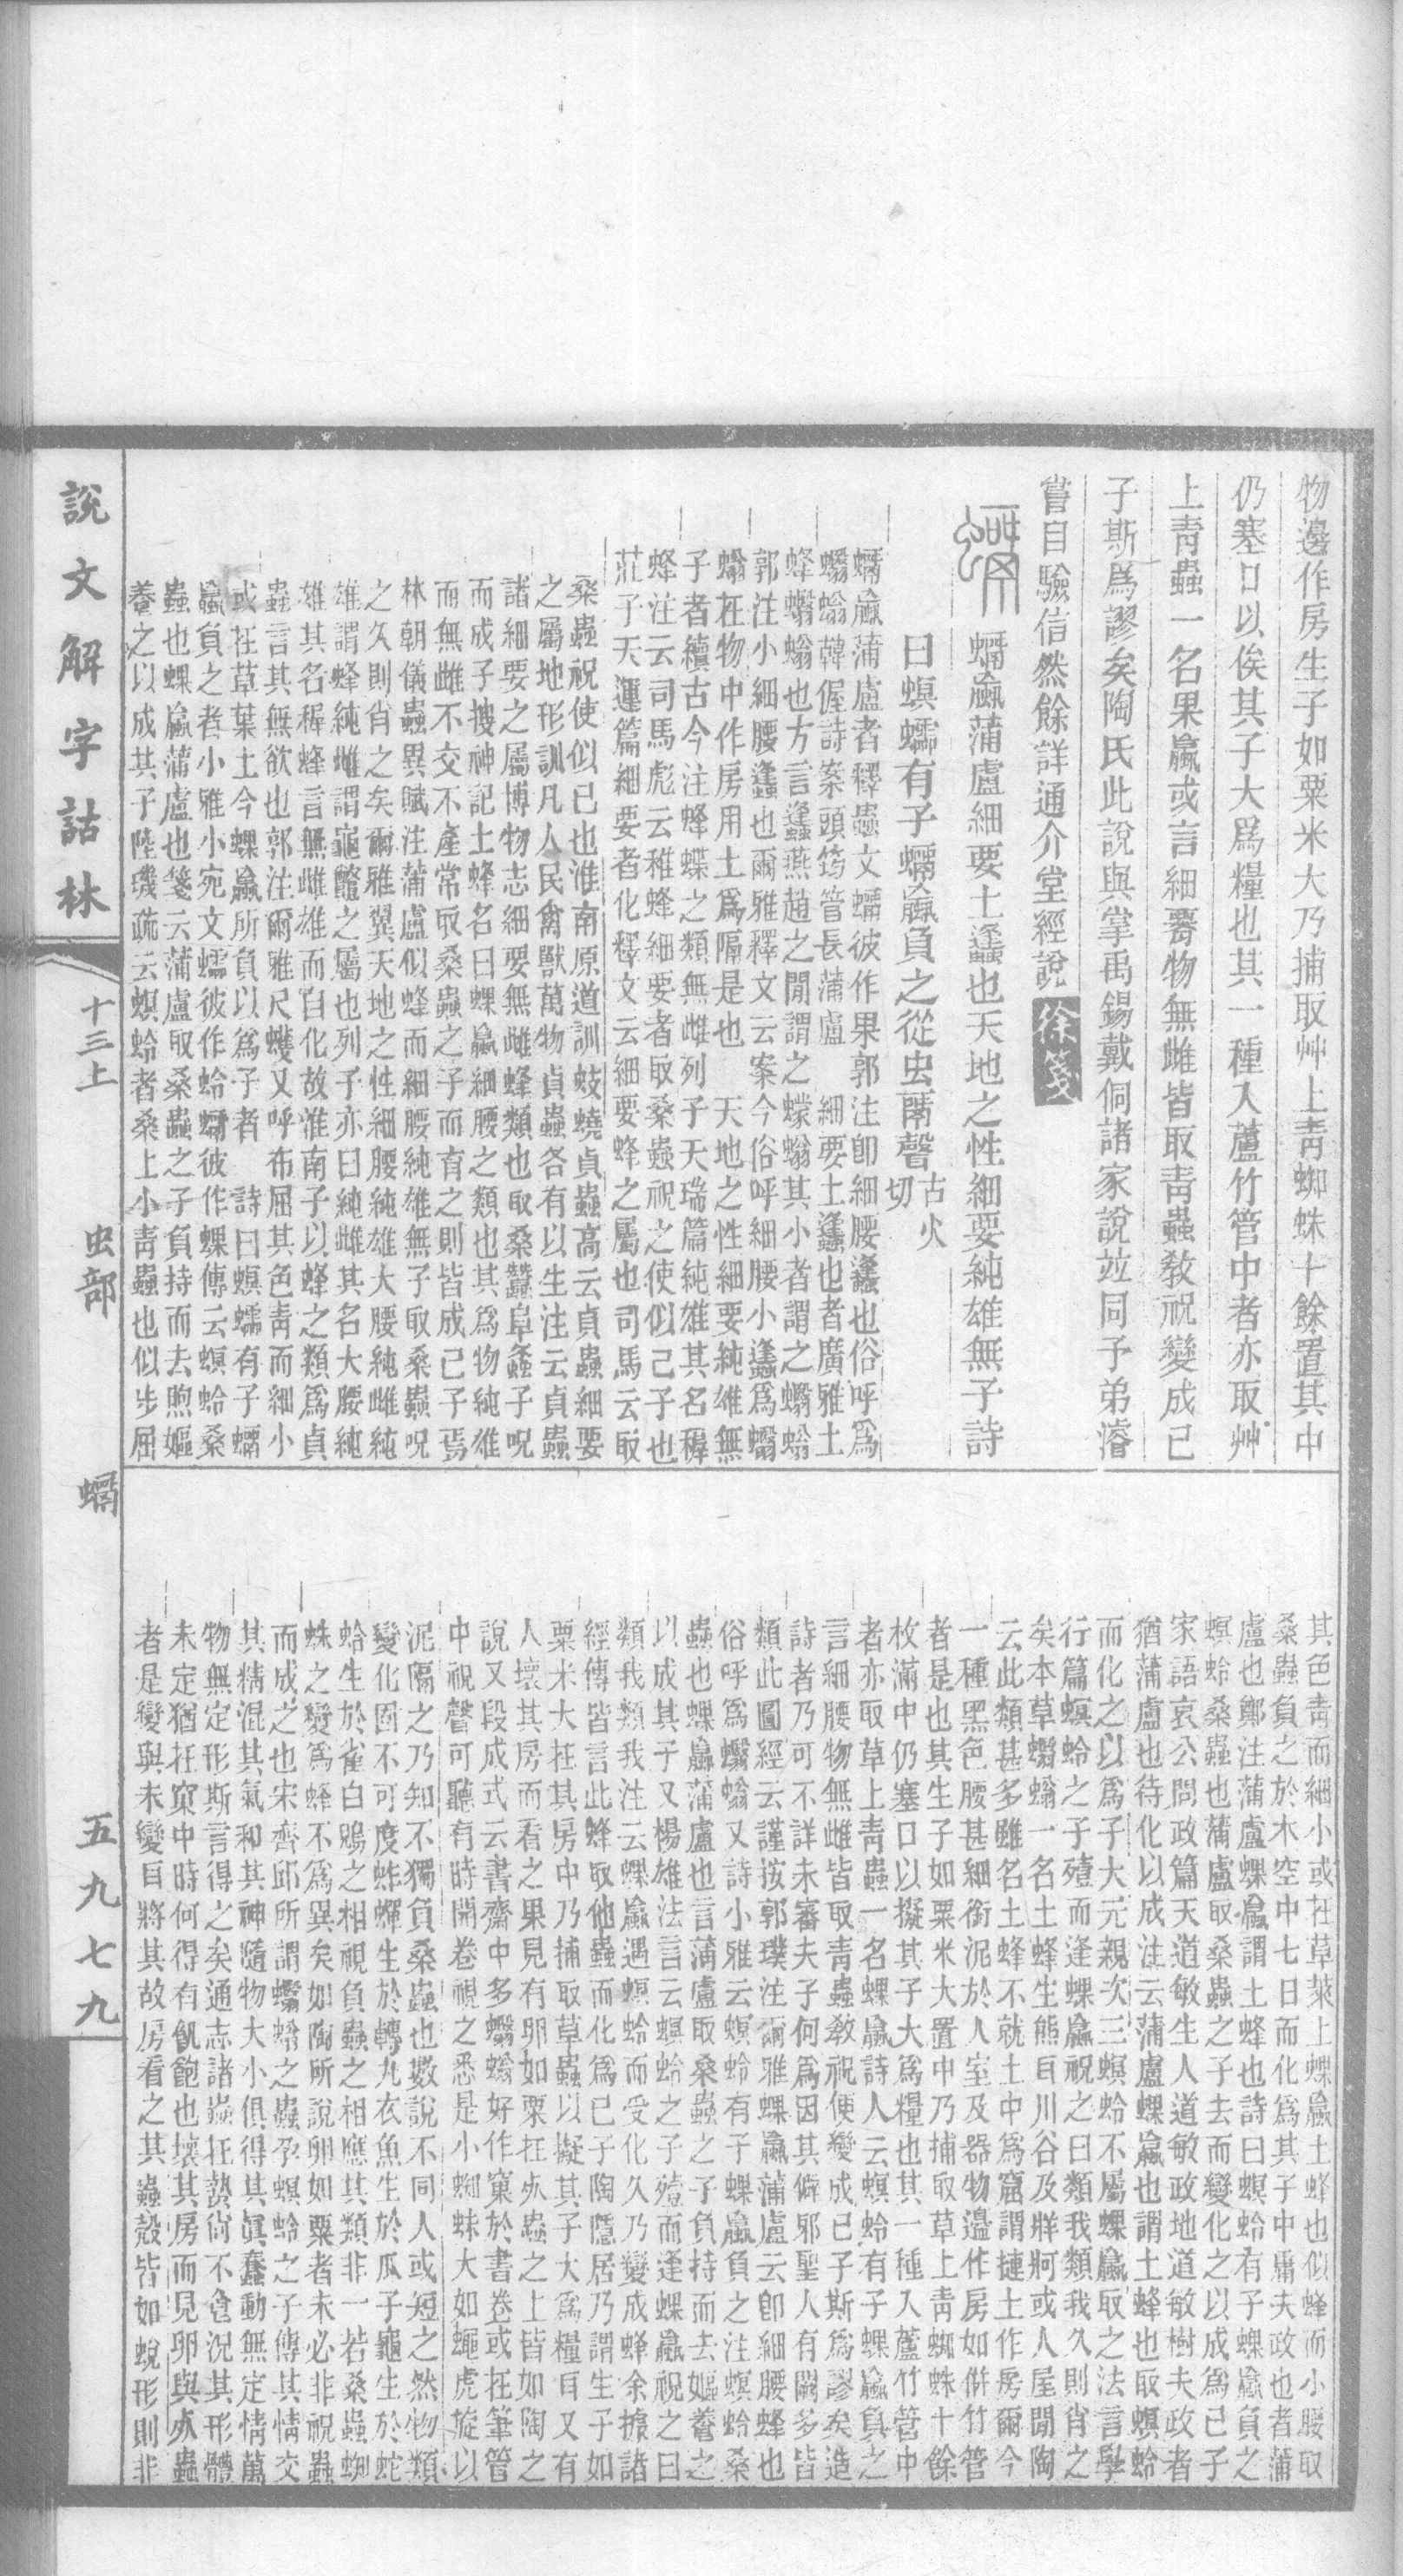 物邊作房生子如粟米大乃捕取艸上靑蜘蛛十餘置其中
仍塞口以俟其子大爲糧也其一種入蘆竹管中者亦取艸
上靑蟲一名果蠃或言細䙅物無雌皆取靑蟲敎祝變成己
子斯爲謬矣陶氏此說與掌禹錫戴侗諸家說竝同予弟濬
嘗目驗信然餘詳通介堂經說 徐箋
蠣蠃蒲盧細要土蠭也天地之性細要純雄無子詩
曰螟蠕有子蠣蠃負之從虫𠾧聲 古火切
蠣蠃蒲盧者釋蟲文蠣彼作果郭注卽細腰蠭也俗呼爲
蠮螉韓偓詩案頭筠管長蒲盧 細要土蠭也者廣雅土
蜂蠮螉也方言蠭燕趙之閒謂之蠓螉其小者謂之蠮螉
郭注小細腰蠭也爾雅釋文云案今俗呼細腰小蠭爲蠮
螉在物中作房用土爲隔是也 天地之性細要純雄無
子者續古今注蜂蝶之類無雌列子天瑞篇純雄其名稺
蜂注云司馬彪云稚蜂細要者取桑蟲祝之使似己子也
莊子天運篇細要者化釋文云細要蜂之屬也司馬云取
桑蟲祝使似己也淮南原道訓蚑蟯貞蟲高云貞蟲細要
之屬地形訓凡人民禽獸萬物貞蟲各有以生注云貞蟲
諸細要之屬博物志細要無雌蜂類也取桑蠶阜螽子呪
而成子搜神記土蜂名曰蜾蠃細腰之類也其爲物純雄
而無雌不交不產常取桑蟲之子而育之則皆成己子焉
林朝儀蟲異賦注蒲盧似蜂而細腰純雄無子取桑蟲呪
之久則肖之矣爾雅翼天地之性細腰純雄大腰純雌純
雄謂蜂純雌謂龜鼈之屬也列子亦曰純雌其名大腰純
雄其名稺蜂言無雌雄而自化故淮南子以蜂之類爲貞
蟲言其無欲也郭注爾雅尺蠖又呼布屈其色靑而細小
或在草葉土今蜾蠃所負以爲子者 詩曰螟蠕有子蠣
蠃負之者小雅小宛文蠕彼作蛉蠣彼作蜾傳云螟蛉桑
蟲也蜾蠃蒲盧也箋云蒲盧取桑蟲之子負持而去煦嫗
養之以成其子陸璣疏云螟蛉者桑上小靑蟲也似步屈
其色靑而細小或在草萊上蜾蠃土蜂也似蜂而小腰取
桑蟲負之於木空中七日而化爲其子中庸夫政也者蒲
盧也鄭注蒲盧蜾蠃謂土蜂也詩曰螟蛉有子蜾蠃負之
螟蛉桑蟲也蒲盧取桑蟲之子去而變化之以成爲己子
家語哀公問政篇天道敏生人道敏政地道敏樹夫政者
猶蒲盧也待化以成注云蒲盧蜾蠃也謂土蜂也取螟蛉
而化之以爲子大元親次三螟蛉不屬蜾蠃取之法言學
行篇螟蛉之子殪而逢蜾蠃祝之曰類我類我久則肖之
矣本草蠮螉一名土蜂生熊耳川谷及牂牁或人屋閒陶
云此類甚多雖名土蜂不就土中爲窟謂摙土作房爾今
一種黑色腰甚細銜泥於人室及器物邊作房如倂竹管
者是也其生子如粟米大置中乃捕取草上靑蜘蛛十餘
枚滿中仍塞口以擬其子大爲糧也其一種入蘆竹管中
者亦取草上靑蟲一名蜾蠃詩人云螟蛉有子蜾蠃負之
言細腰物無雌皆取靑蟲敎祝便變成己子斯爲謬矣造
詩者乃可不詳未審夫子何爲因其僻邪聖人有闕多皆
類此圖經云謹按郭璞注爾雅蜾蠃蒲盧云卽細腰蜂也
俗呼爲蠮螉又詩小雅云螟蛉有子蜾蠃負之注螟蛉桑
蟲也蜾蠃蒲盧也言蒲盧取桑蟲之子負持而去嫗養之
以成其子又楊雄法言云螟蛉之子殪而逢蜾蠃祝之曰
類我類我注云蜾蠃遇螟蛉而受化久乃變成蜂余據諸
經傳皆言此蜂取他蟲而化爲己子陶隱居乃謂生子如
粟米大在其房中乃捕取草蟲以擬其子大爲糧耳又有
人壞其房而看之果見有卵如粟在𣦸蟲之上皆如陶之
說又段成式云書齋中多蠮螉好作窠於書卷或在筆管
中祝聲可聽有時開卷視之悉是小蜘蛛大如蠅虎旋以
泥隔之乃知不獨負桑蟲也數說不同人或短之然物類
變化固不可度蚱蟬生於轉丸衣魚生於瓜子龜生於蛇
蛤生於雀白鶂之相視負蟲之相應其類非一若桑蟲蜘
蛛之變爲蜂不爲異矣如陶所說卵如粟者未必非祝蟲
而成之也宋齊邱所謂蠮螉之蟲孕螟蛉之子傳其情交
其精混其氣和其神隨物大小俱得其眞蠢動無定情萬
物無定形斯言得之矣通志諸蟲在蟄尙不食況其形體
未定猶在窠中時何得有飢飽也壞其房而見卵與𣦸蟲
者是變與未變耳將其故房看之其蟲殼皆如蛻形則非
說文解字詁林
十三上
虫部
蠣
五九七九